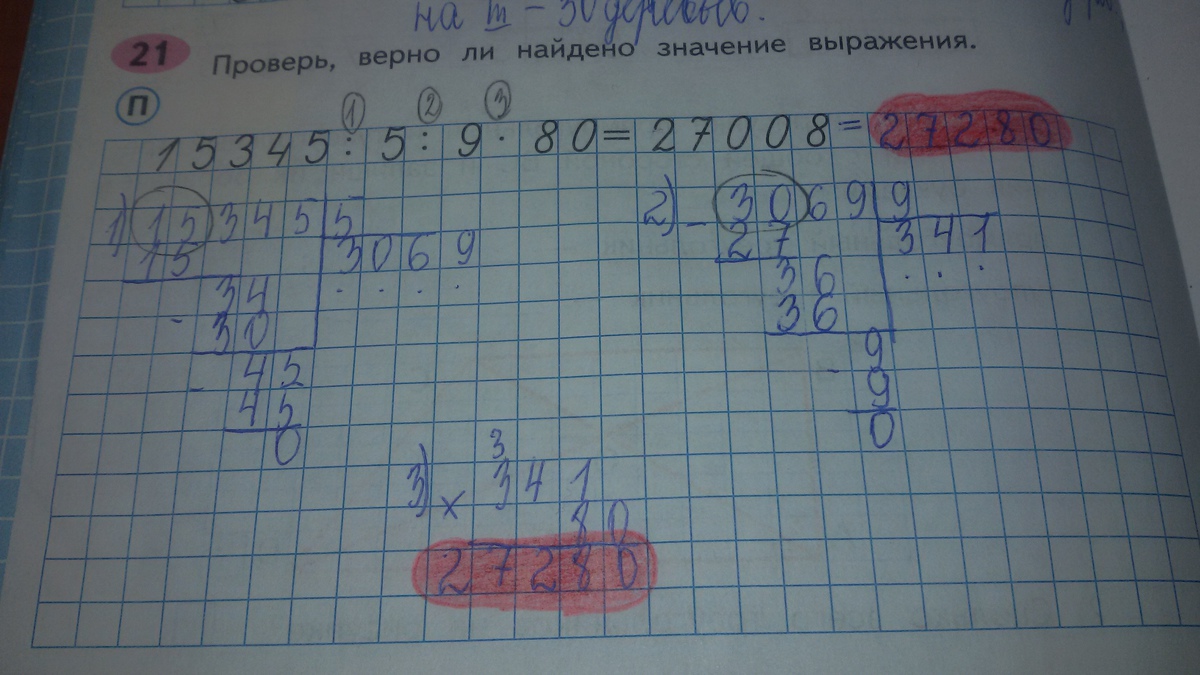 на m – 30
21 Проверь, верно ли найдено значение выражения.
П
1 2 3
15345 : 5 : 9 · 80 = 27008 = 27280
1) 15345 5
15 3069
34 . . . .
- 30
- 45
45
0
2) - 3069 9
27 341
36 . . .
36
- 9
9
0
3
3) × 341
80
27280